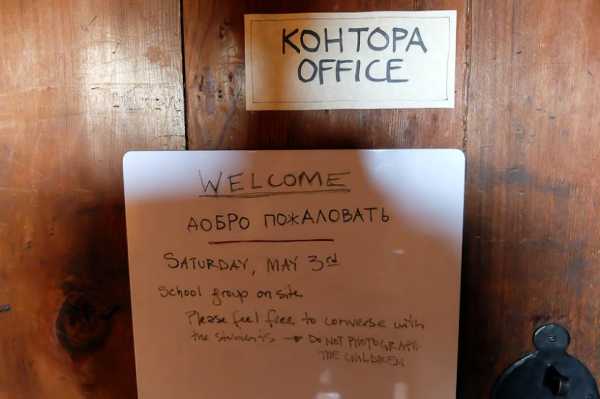 КОНТОРА
OFFICE
WELCOME
ДОБРО ПОЖАЛОВАТЬ
SATURDAY, MAY 3rd
School group on site
Please feel free to converse with
the students → DO NOT PHOTOGRAPH
THE CHILDREN